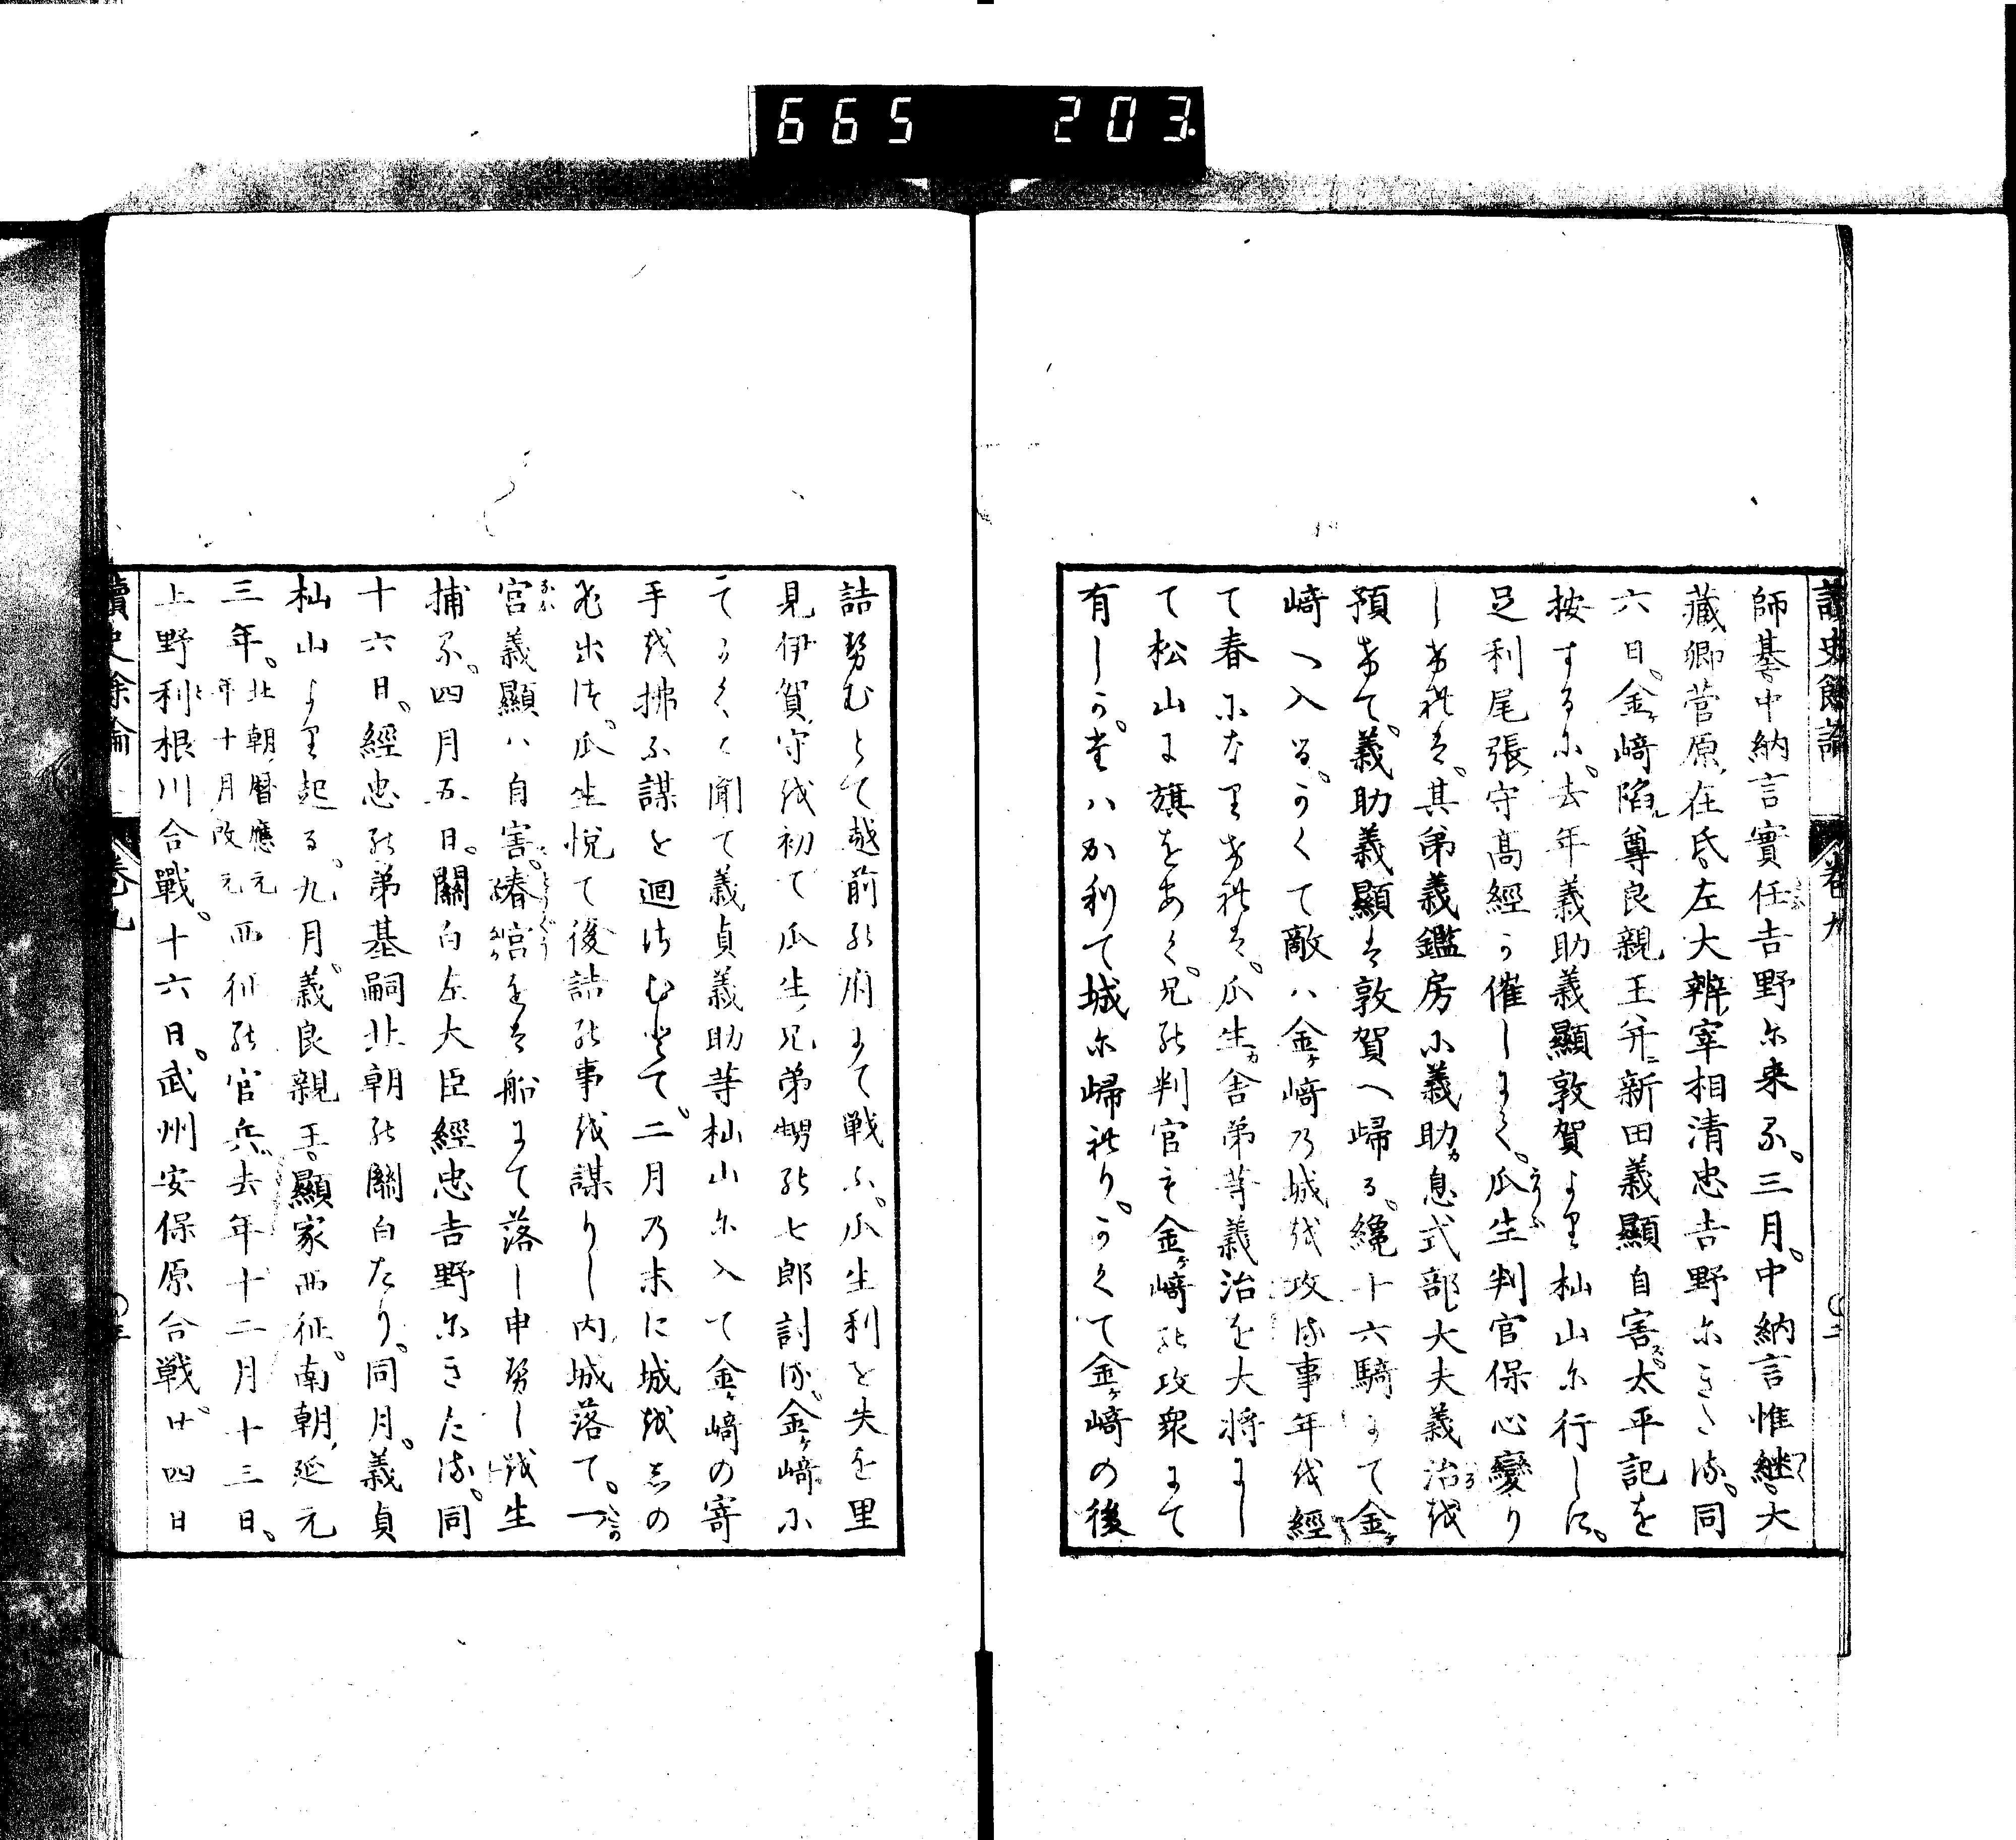 665 203.
讀史餘論 卷九 〇二
師基。中納言實任吉野尓来る。三月。中納言惟継。大
藏卿菅原在氏。左大辨宰相清忠吉野尓きたる。同
六日。金ヶ崎陷ル尊良親王并ニ新田義顯自害ス。太平記を
按するに。去年義助義顯敦賀より杣山尓行しに。
足利尾張守高經か催しにて。瓜生判官保心變り
しけれは。其弟義鑑房に義助カ息式部大夫義治を
預けて。義助義顯は敦賀へ歸る。纔十六騎にて金ヶ
崎へ入る。かくて敵ハ金ヶ崎乃城を攻る事年を經
て春になりけれは。瓜生カ舎弟等義治を大将にし
て松山に旗をあく。兄の判官も金ヶ崎の攻衆にて
有しか。堂ハかりて城尓歸れり。かくて金ヶ崎の後
詰努むとて越前の府にて戦ふ。瓜生利を失を里
見伊賀守を初て瓜生兄弟甥の七郎討る。金ヶ崎に
てかくと聞て義貞義助等杣山尓入て金ヶ崎の寄
手を拂ふ謀を廻さむとて。二月乃末に城を志の
ひ出る。瓜生悦て後詰の事を謀りし内城落て。一
宮義顯ハ自害。春宮をは船にて落し申努しを生
捕る。四月五日。關白左大臣經忠吉野尓きたる。同
十六日。經忠の弟基嗣北朝の關白たり。同月。義貞
杣山より起る。九月。義良親王。顯家西征。南朝延元
三年。北朝暦應元年十月改元西征の官兵去年十二月十三日。
上野利根川合戰。十六日。武州安保原合戦。廿四日
讀史餘論 卷九 〇三